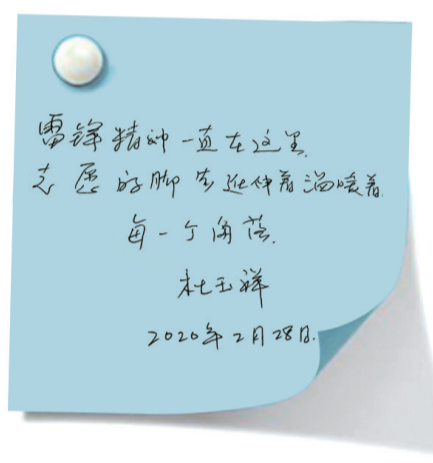 雷锋精神一直在这里,
志愿的脚步延伸着温暖着
每一个角落.
杜玉祥
2020年2月28日.